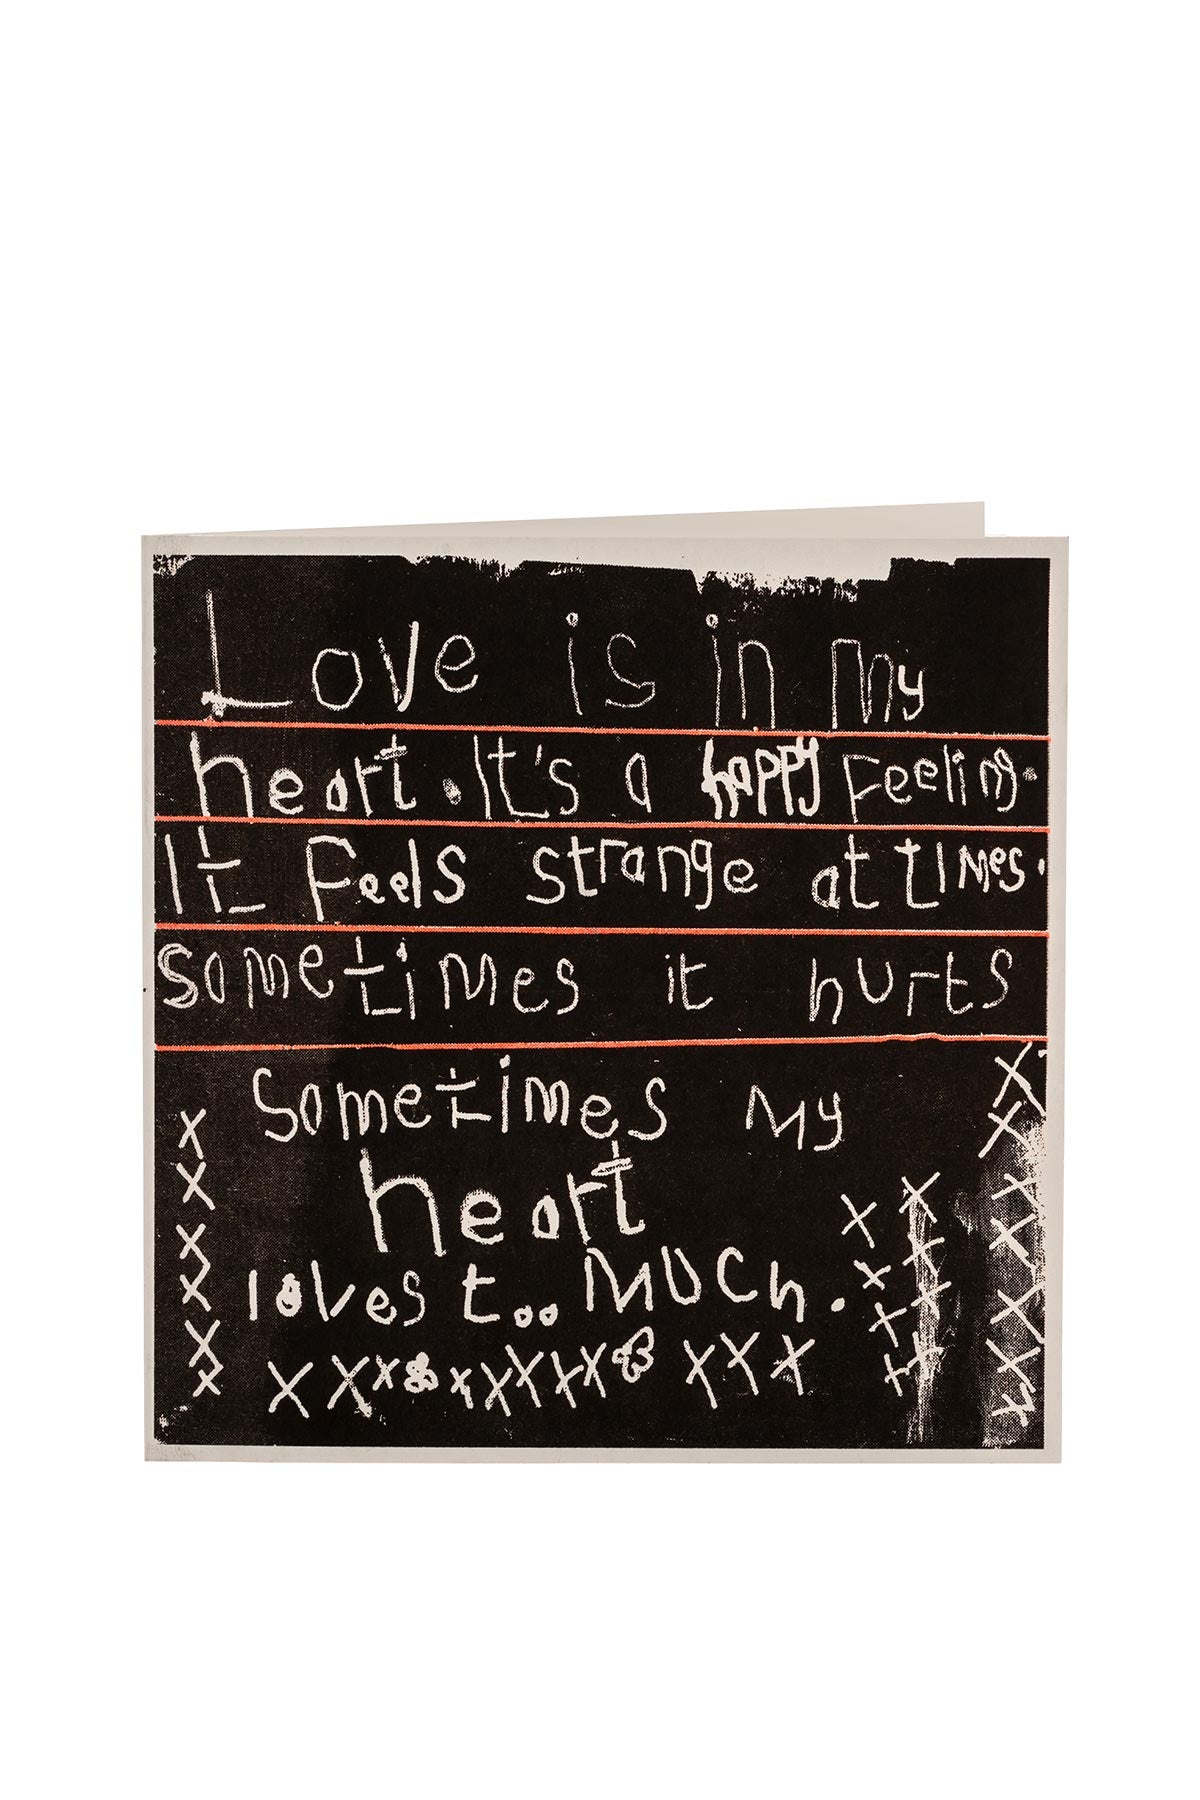 Love is in my
heart. It's a happy feeling.
It feels strange at times.
sometimes it hurts
sometimes my
heart
loves too much.
x x x x x x x x x x x x